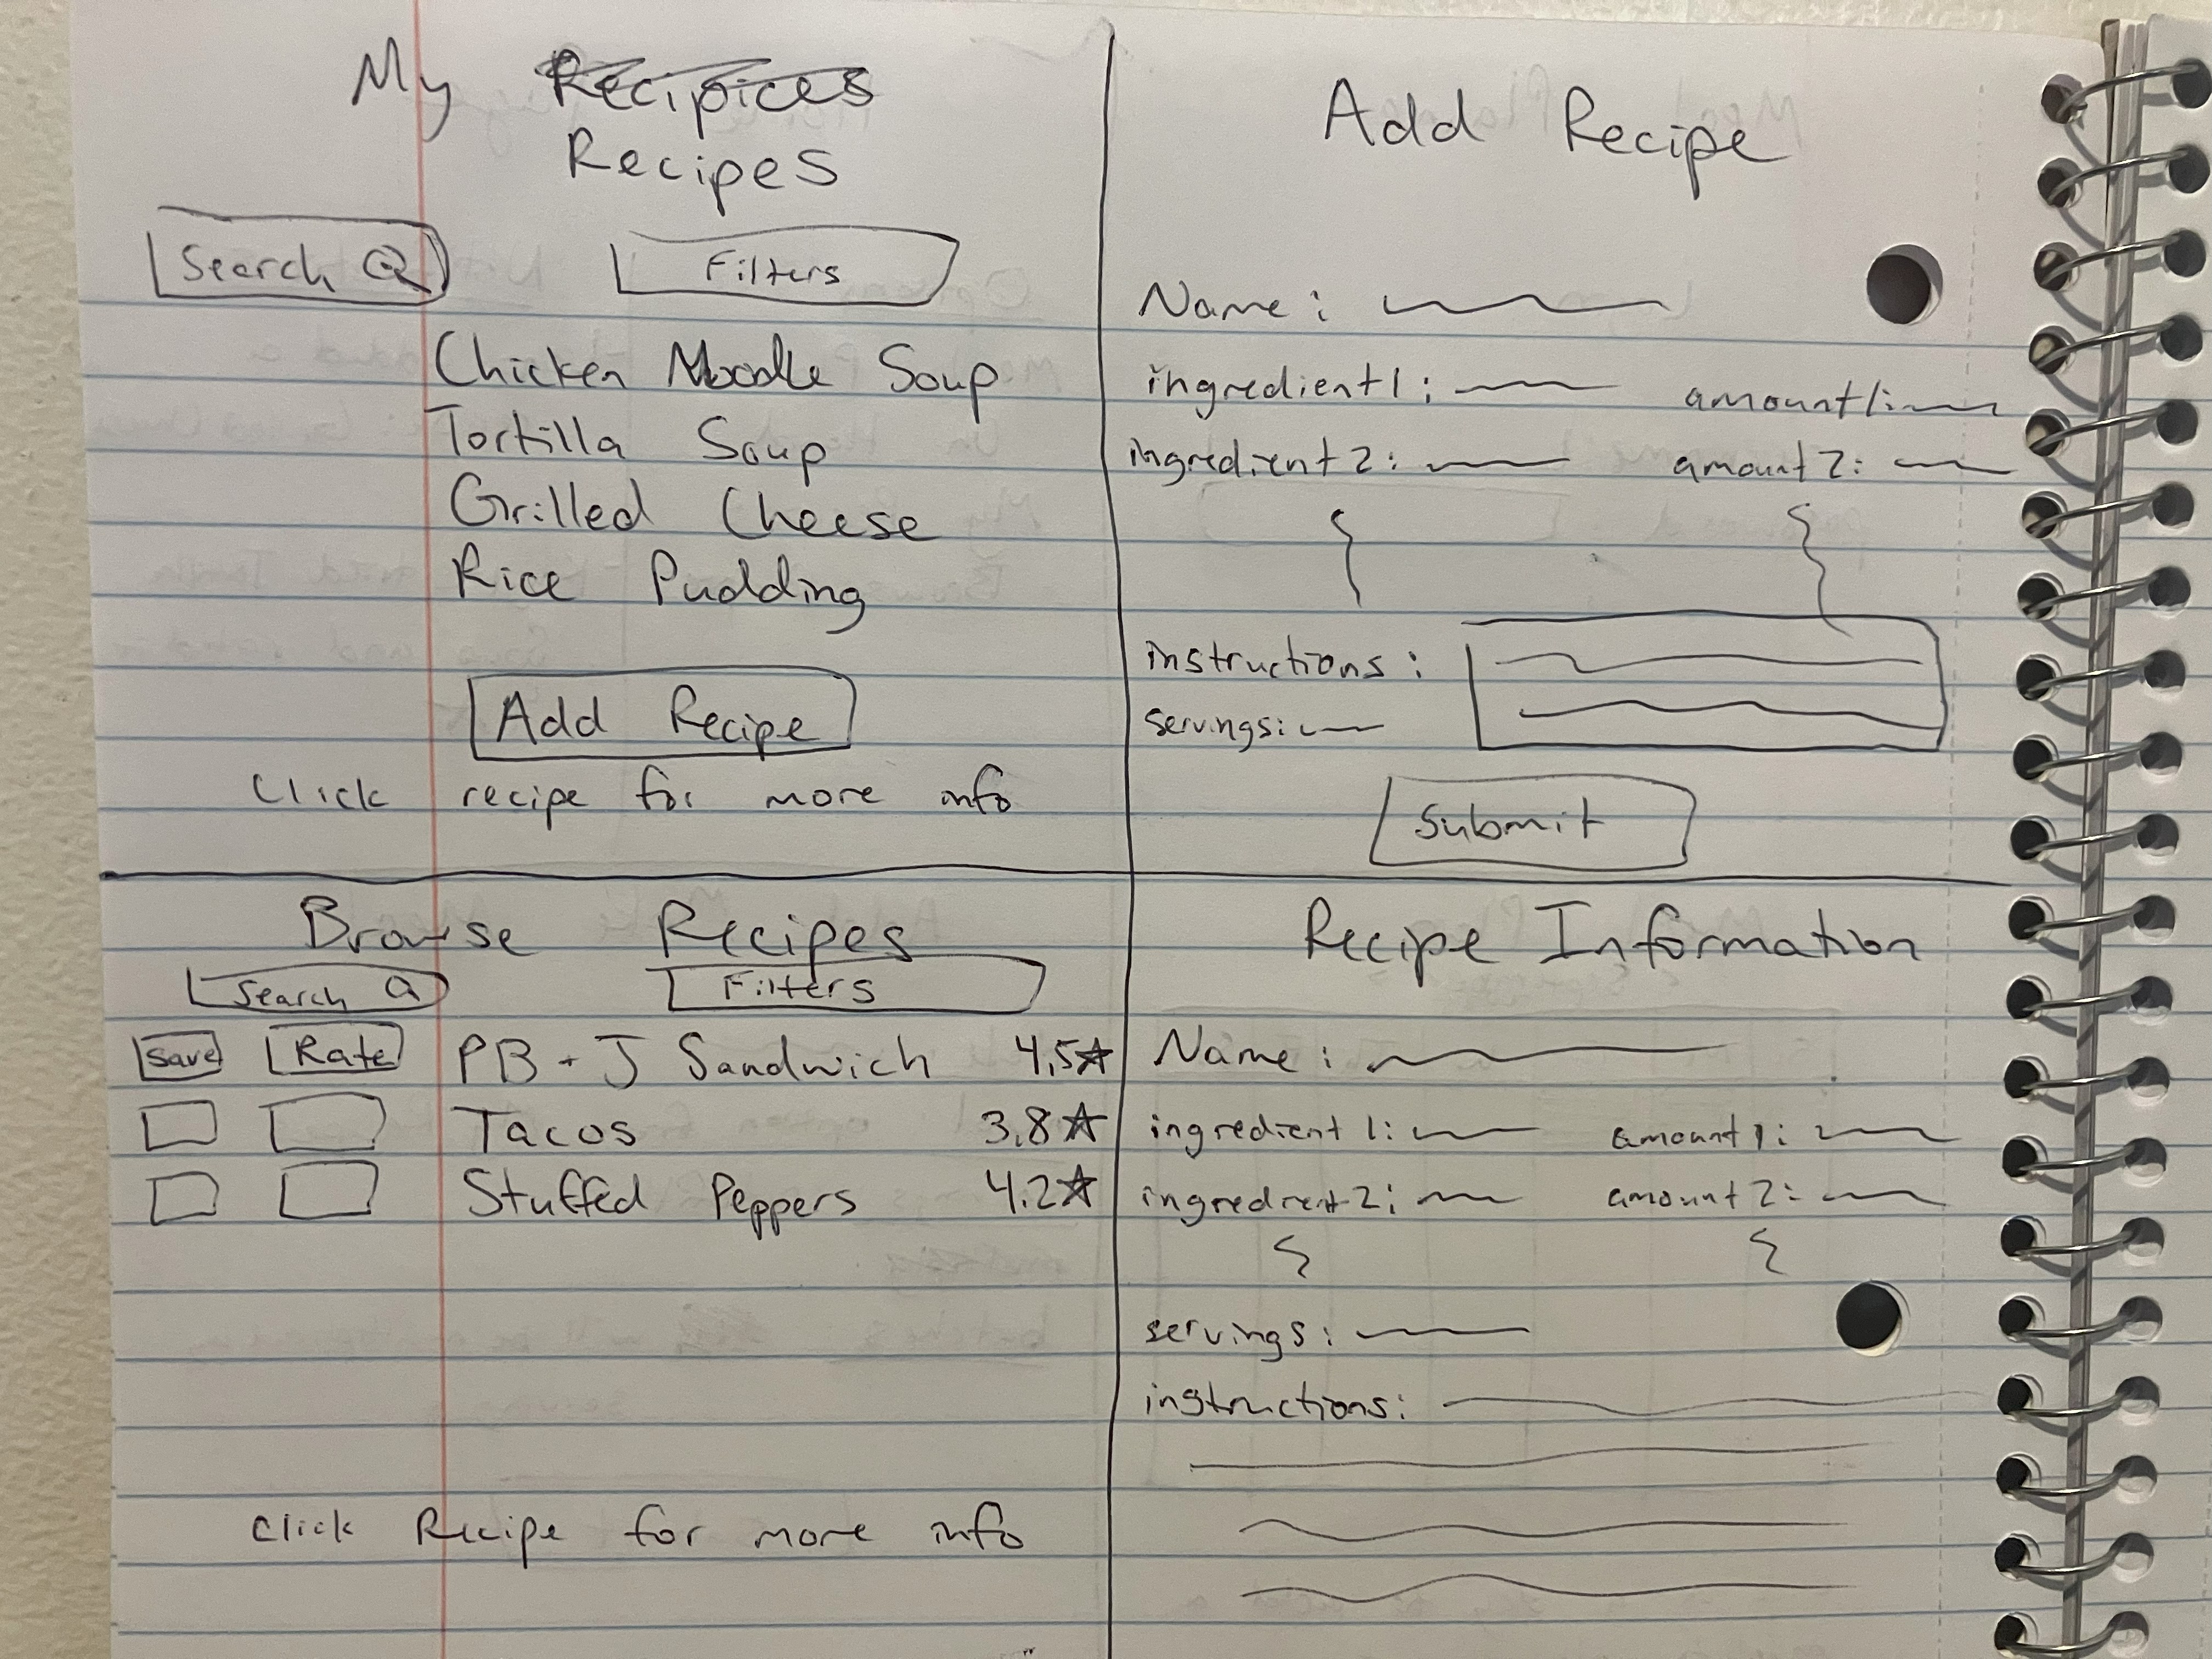 My Recipices
Recipes
Search
Filters
Chicken Noodle Soup
Tortilla Soup
Grilled Cheese
Rice Pudding
Add Recipe
Click recipe for more info
Add Recipe
Name:
ingredient 1:
amount 1:
ingredient 2:
amount 2:
instructions:
servings:
Submit
Browse Recipes
Search
Filters
Save Rate PB + J Sandwich 4.5☆
Tacos 3.8☆
Stuffed Peppers 4.2☆
Click Recipe for more info
Recipe Information
Name:
ingredient 1:
amount 1:
ingredient 2:
amount 2:
servings:
instructions: